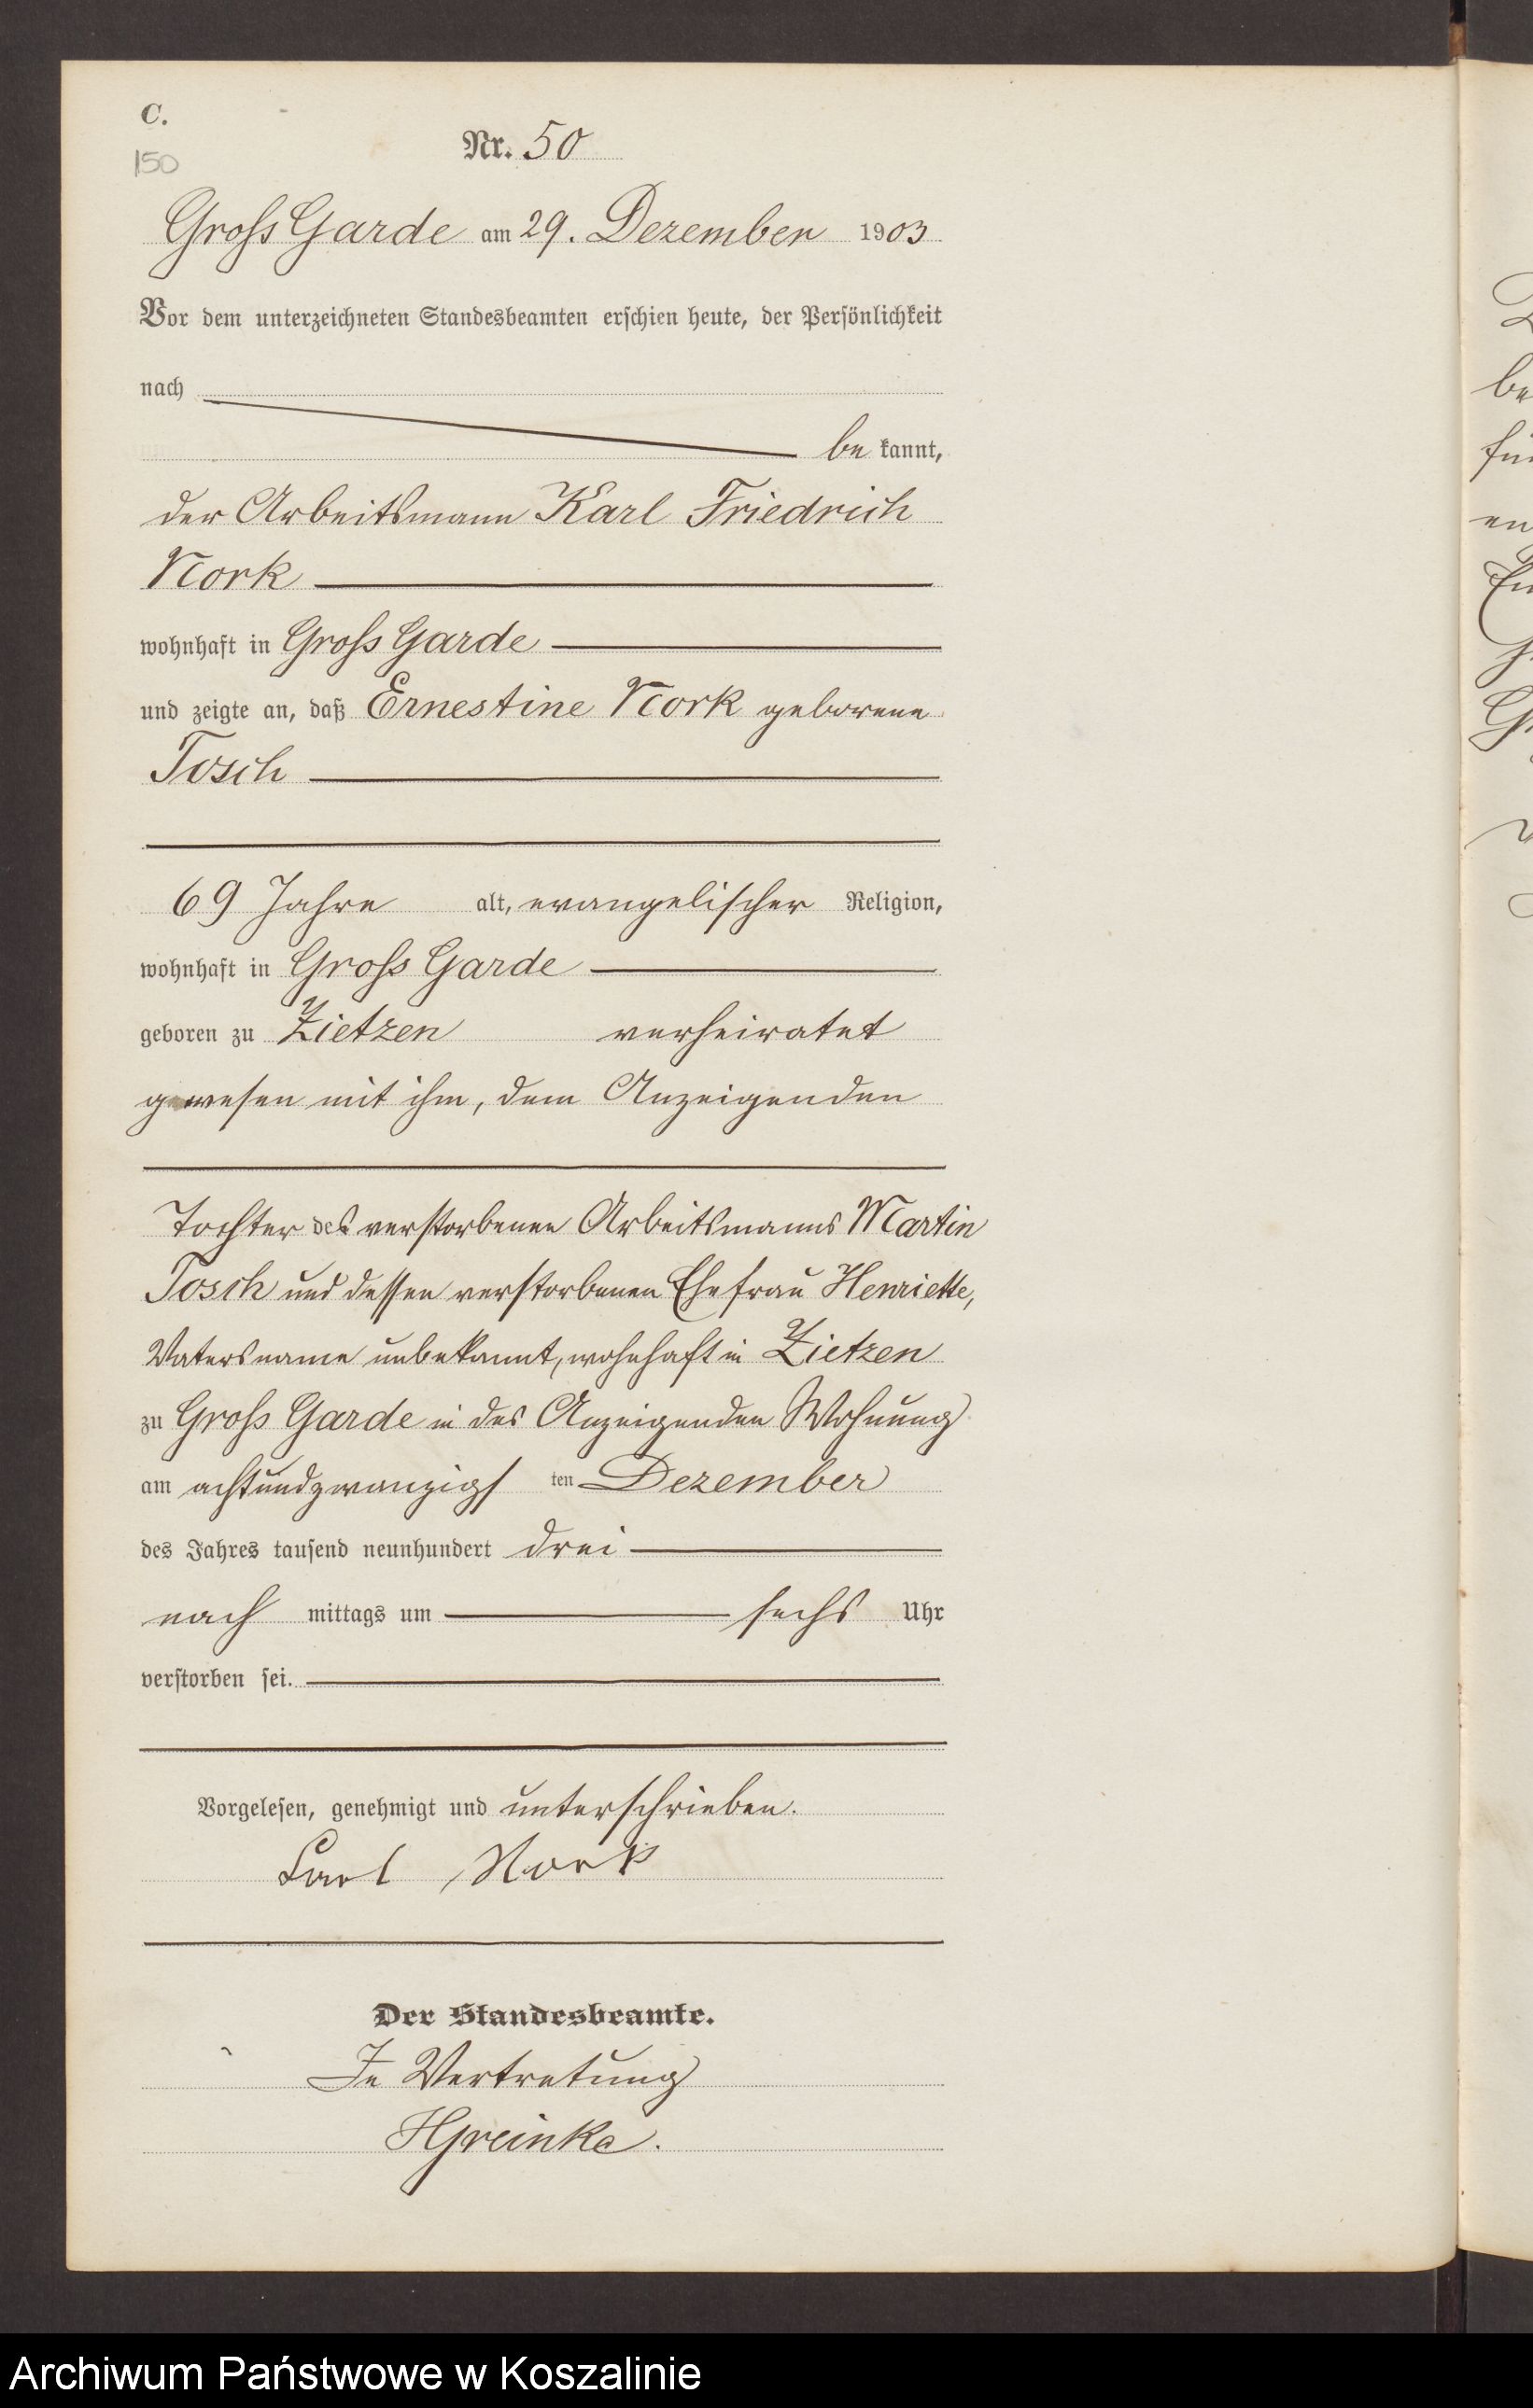 C.
150
Nr. 50
Gross Garde am 29. Dezember 1903
Vor dem unterzeichneten Standesbeamten erschien heute, der Persönlichkeit
nach
be kannt,
der Arbeitsmann Karl Friedrich
Nork
wohnhaft in Gross Garde
und zeigte an, daß Ernestine Nork geborene
Tosch
69 Jahre alt, evangelischer Religion,
wohnhaft in Gross Garde
geboren zu Zietzen verheiratet
gewesen mit ihm, dem Anzeigenden
Tochter des verstorbenen Arbeitsmanns Martin
Tosch und dessen verstorbenen Ehefrau Henriette,
Vatersname unbekannt, wohnhaft in Zietzen
zu Gross Garde in des Anzeigenden Wohnung
am achtundzwanzigs ten Dezember
des Jahres tausend neunhundert drei
nach mittags um sechs Uhr
verstorben sei.
Vorgelesen, genehmigt und unterschrieben.
Carl Nork
Der Standesbeamte.
In Vertretung
Archiwum Państwowe w Koszalinie